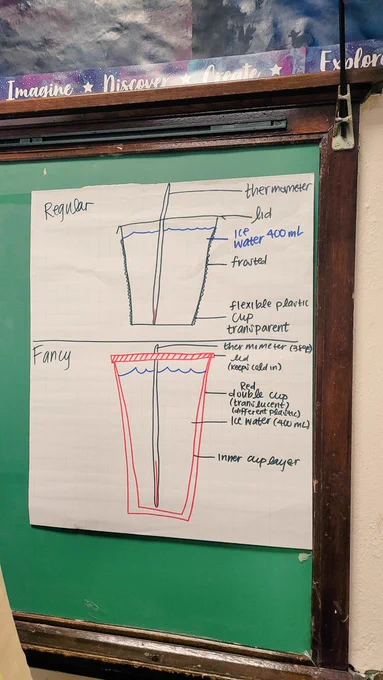 Imagine ★ Discover ★ Create ★ Explore
Regular
thermometer
lid
Ice
Water 400 mL
frosted
flexible plastic
cup
transparent
Fancy
lid
(keeps cold in)
Red
double cup
(translucent)
(different plastic)
Ice water (400 mL)
Inner cup layer